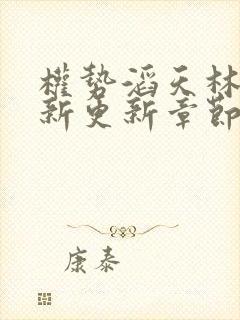 權勢滔天林
新更新章節
康泰